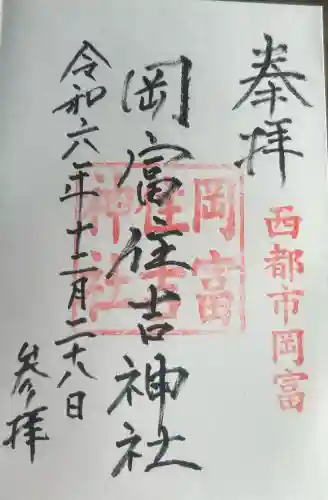 奉拝
西都市岡富
岡富住吉神社
岡富
住吉
神社
令和六年十二月二十八日
参拝